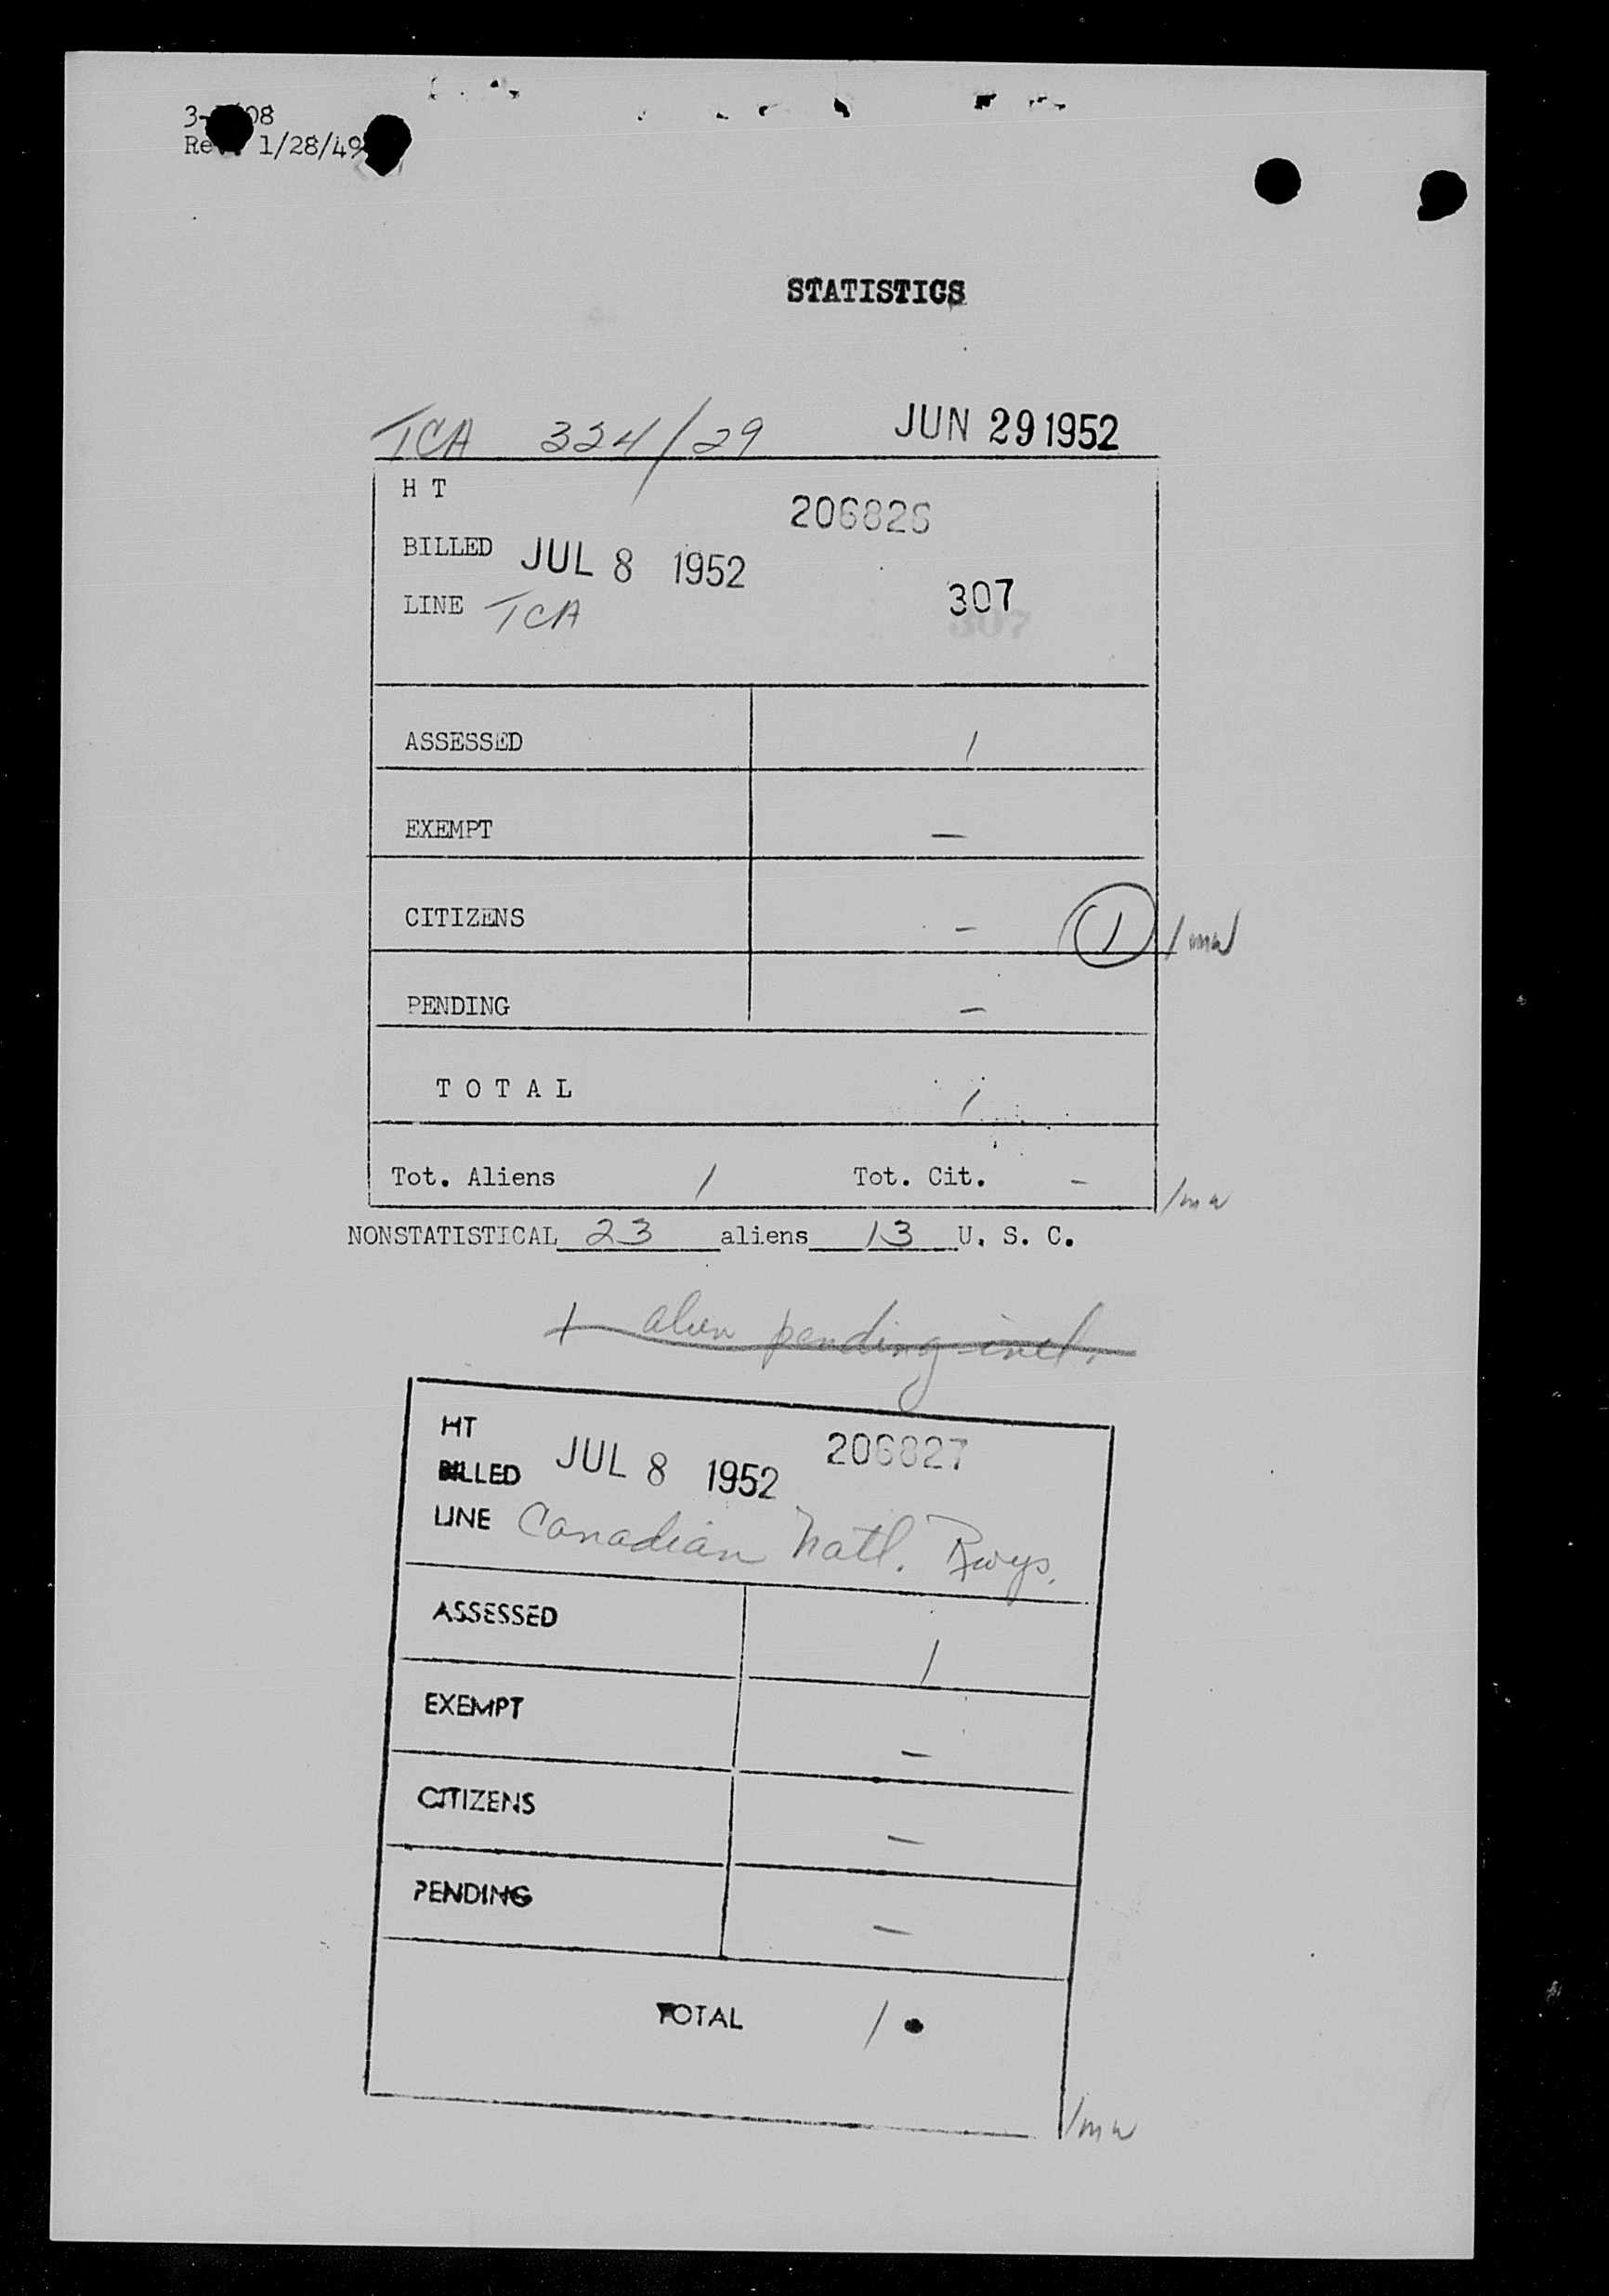 3- 08
Rev. 1/28/49
STATISTICS
TCA 324/29 JUN 29 1952
H T
206826
BILLED JUL 8 1952
LINE TCA 307
ASSESSED 1
EXEMPT –
CITIZENS – 1 /mw
PENDING –
T O T A L 1
Tot. Aliens 1 Tot. Cit. – /mw
NONSTATISTICAL 23 aliens 13 U. S. C.
1 alien pending incl.
HT
206827
BILLED JUL 8 1952
LINE Canadian Natl. Rwys.
ASSESSED 1
EXEMPT –
CITIZENS –
PENDING –
TOTAL 1
/mw